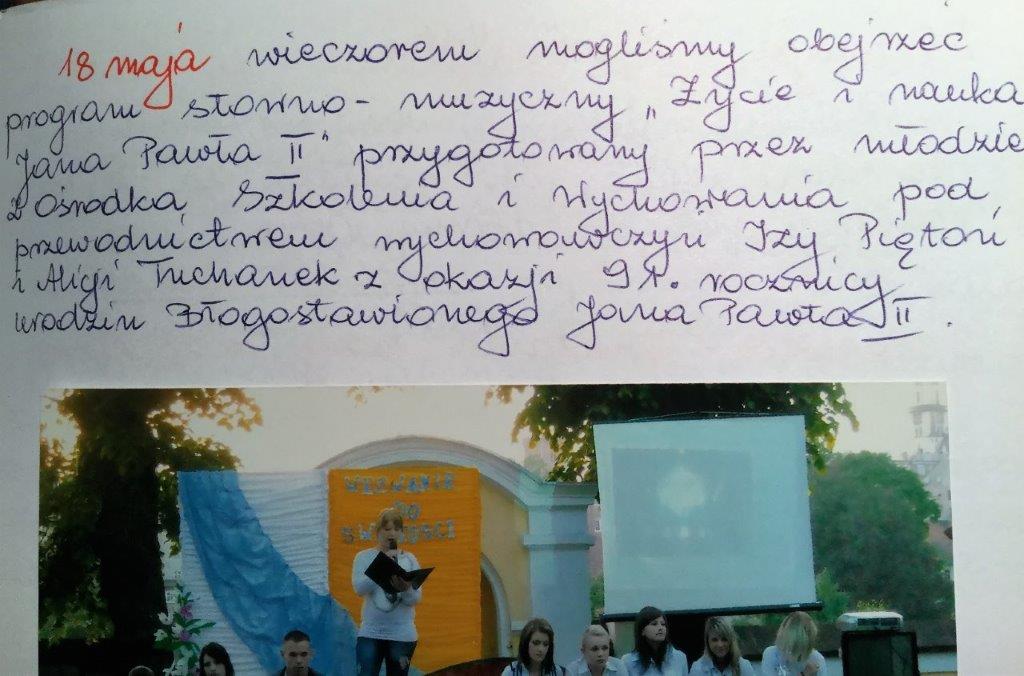 18 maja wieczorem mogliśmy obejrzeć
program słowno-muzyczny „Życie i nauka
Jana Pawła II" przygotowany przez młodzie
z Ośrodka Szkolenia i Wychowania pod
przewodnictwem wychowawczyń Izy Piętoń
i Alicji Tuchanek z okazji 91. rocznicy
urodzin Błogosławionego Jana Pawła II.
WEZWANIE
DO
ŚWIĘTOŚCI